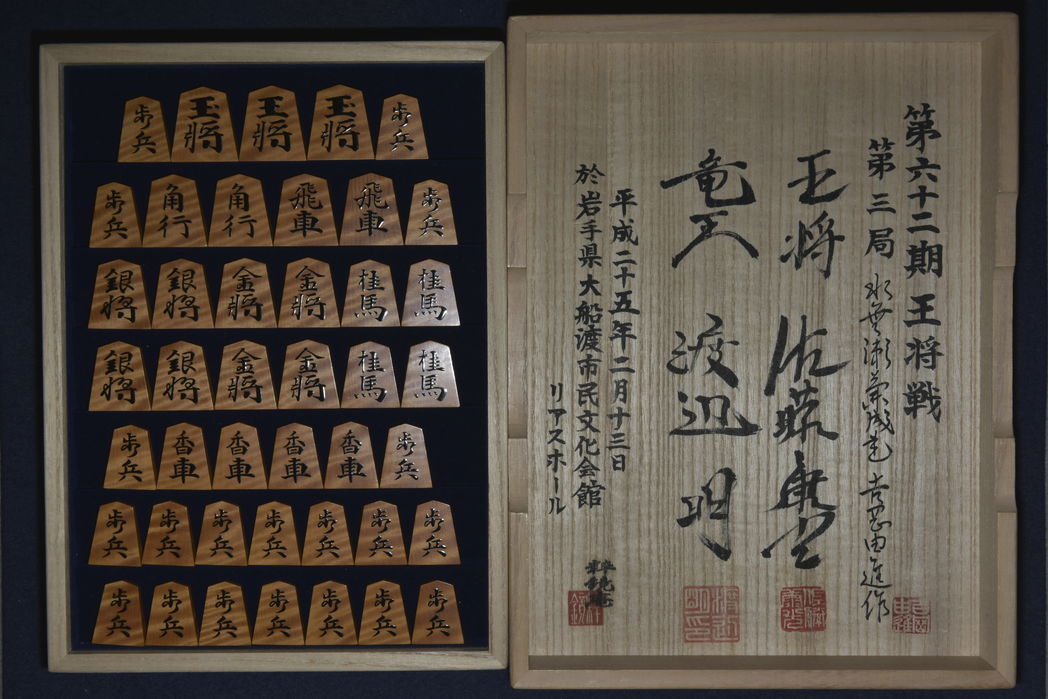 歩兵 玉将 玉将 玉将 歩兵
歩兵 角行 角行 飛車 飛車 歩兵
銀将 銀将 金将 金将 桂馬 桂馬
銀将 銀将 金将 金将 桂馬 桂馬
歩兵 香車 香車 香車 香車 歩兵
歩兵 歩兵 歩兵 歩兵 歩兵 歩兵 歩兵
歩兵 歩兵 歩兵 歩兵 歩兵 歩兵 歩兵
第六十二期 王将戦
第三局 水無瀬兼成 由進作
王将 佐藤康光
竜王 渡辺明
平成二十五年二月十三日
於岩手県大船渡市民文化会館
リアスホール